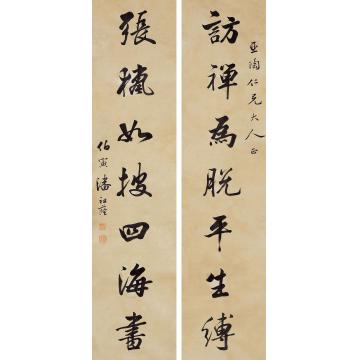 亞陶仁兄大人正
訪禪為脫平生縛
張穠如披四海書
伯寅潘祖蔭